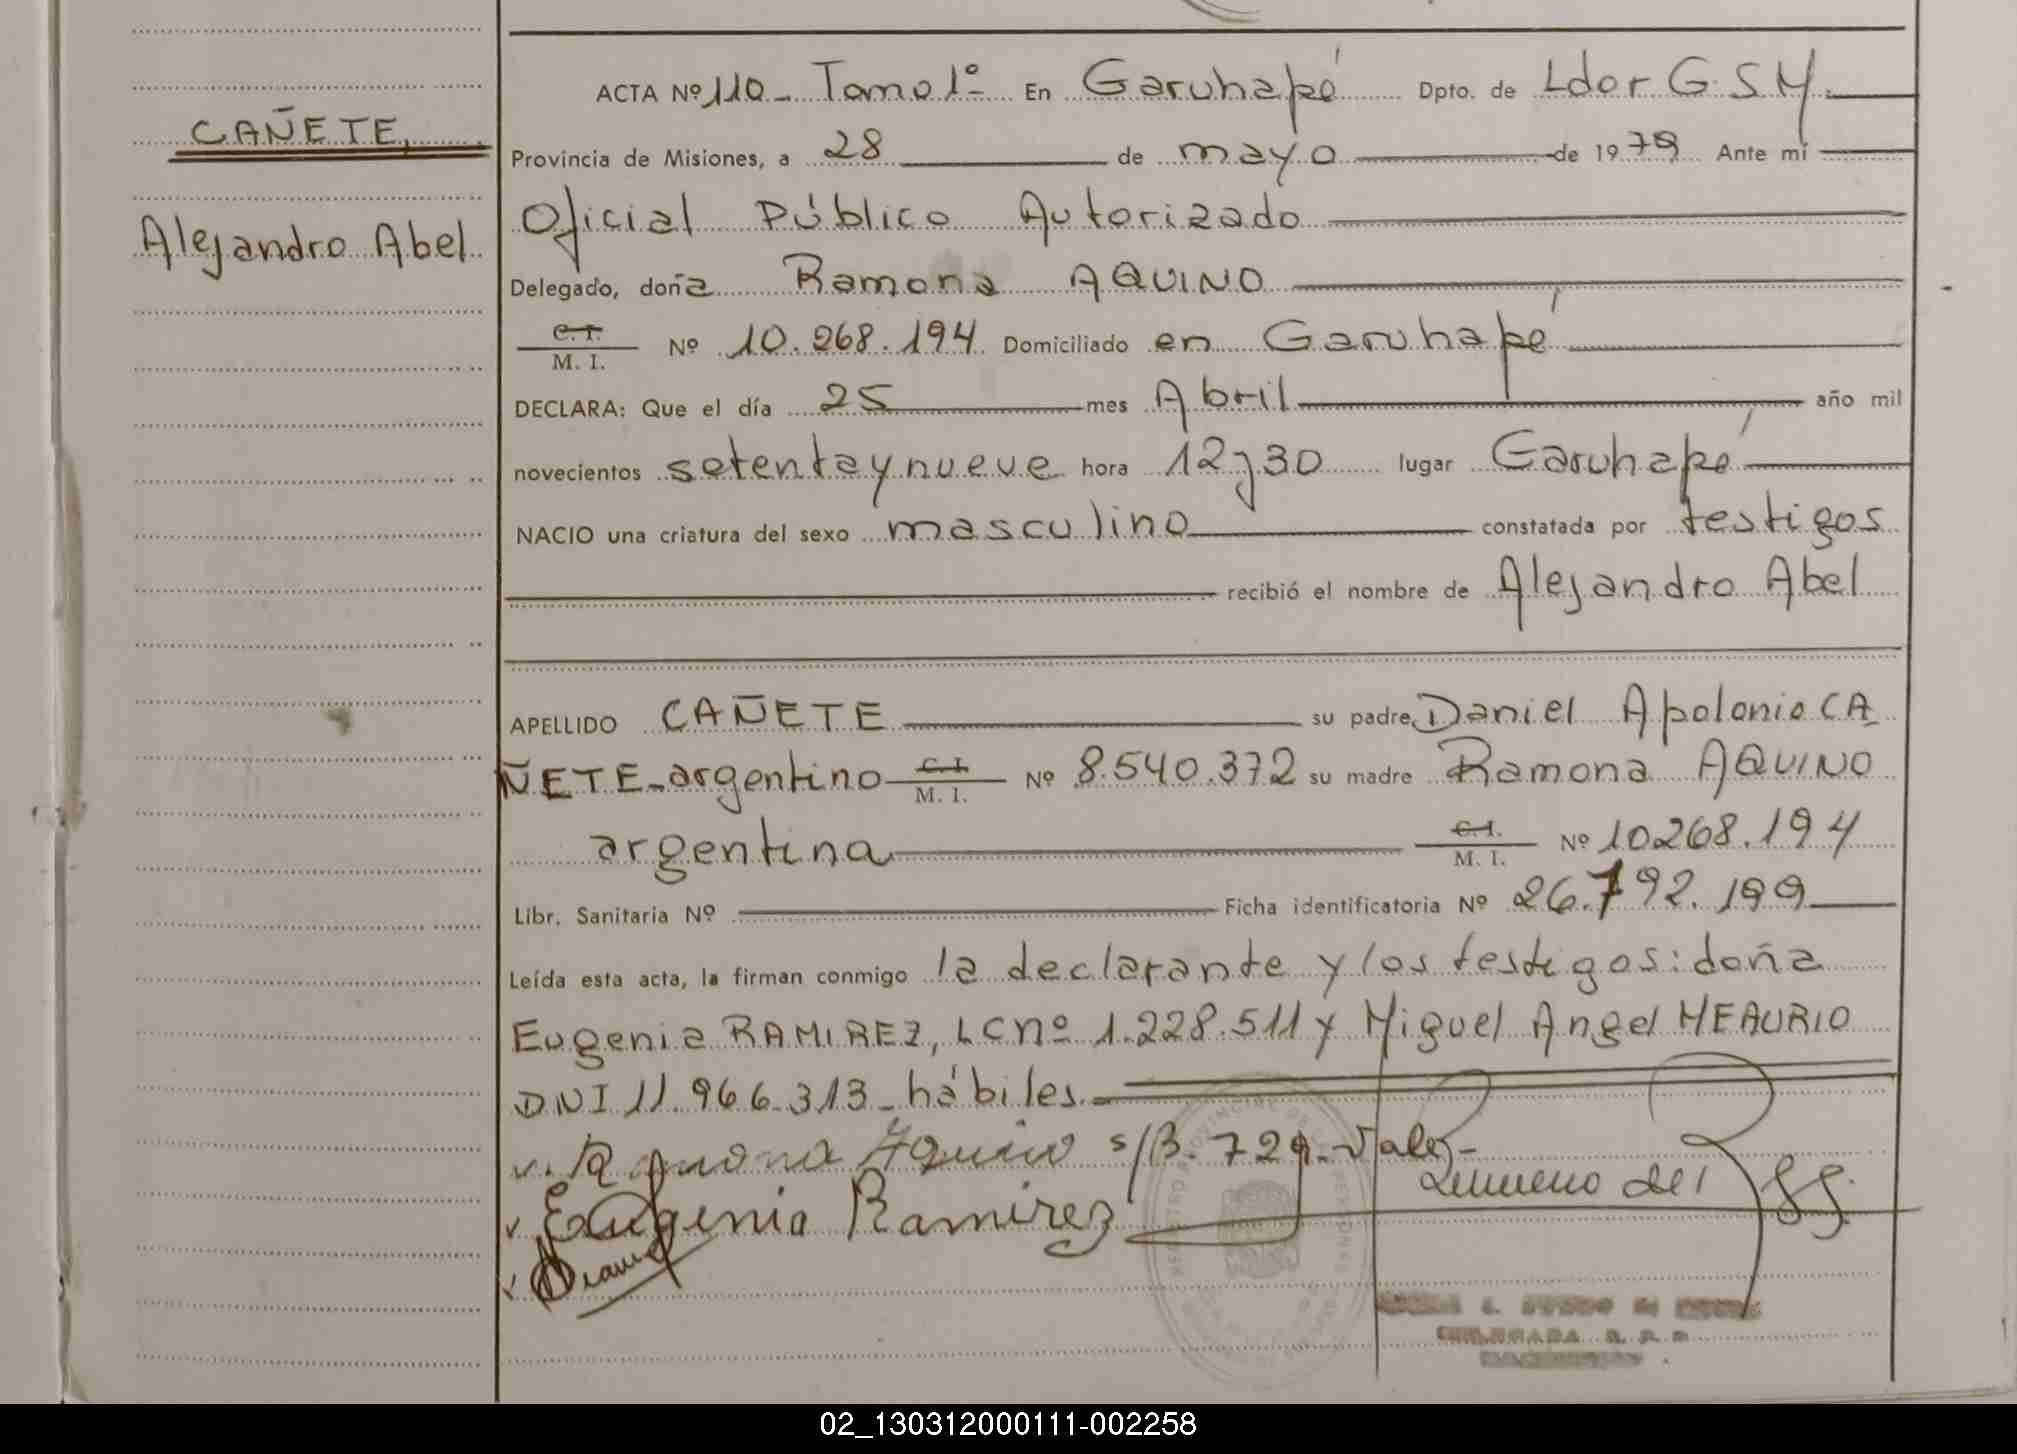 CAÑETE,
Alejandro Abel
ACTA Nº 110_ Tomo 1º En Garuhapé Dpto. de Ldor G.S.M.
Provincia de Misiones, a 28 de mayo de 1979 Ante mí
Oficial Público Autorizado
Delegado, doña Ramona AQUINO
C.I. M. I. Nº 10.268.194 Domiciliado en Garuhapé
DECLARA: Que el día 25 mes Abril año mil
novecientos setenta y nueve hora 12 y 30 lugar Garuhapé
NACIO una criatura del sexo masculino constatada por testigos
recibió el nombre de Alejandro Abel
APELLIDO CAÑETE su padre, Daniel Apolonio CA_
ÑETE_argentino C.I. M. I. Nº 8.540.372 su madre Ramona AQUINO
argentina C.I. M. I. Nº 10268.194
Libr. Sanitaria Nº Ficha identificatoria Nº 26.792.199
Leída esta acta, la firman conmigo la declarante y los testigos: doña
Eugenia RAMIREZ, LC nº 1.228.511 y Miguel Angel MEAURIO
DNI 11.966.313_hábiles._
v. Ramona Aquino s/B. 729_Vale_
v Eugenia Ramirez
02_130312000111-002258